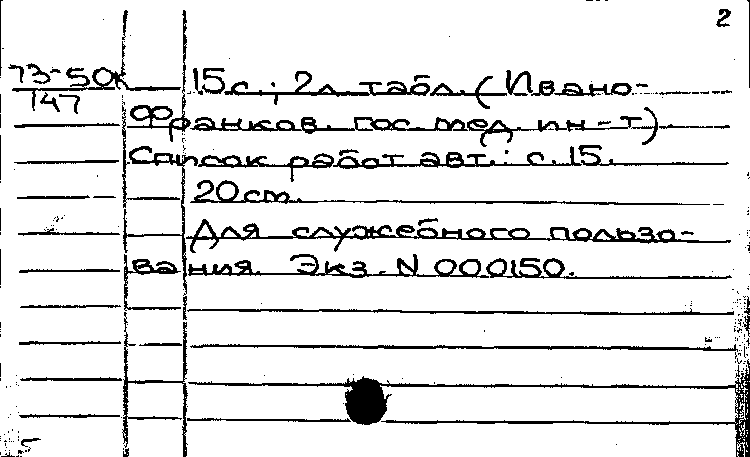 2
73-50к
147
15с.; 2л. табл. (Ивано-
Франков. гос. мед. ин-т).
Список работ авт.: с. 15.
20 см.
Для служебного пользо-
вания. Экз. N 000150.